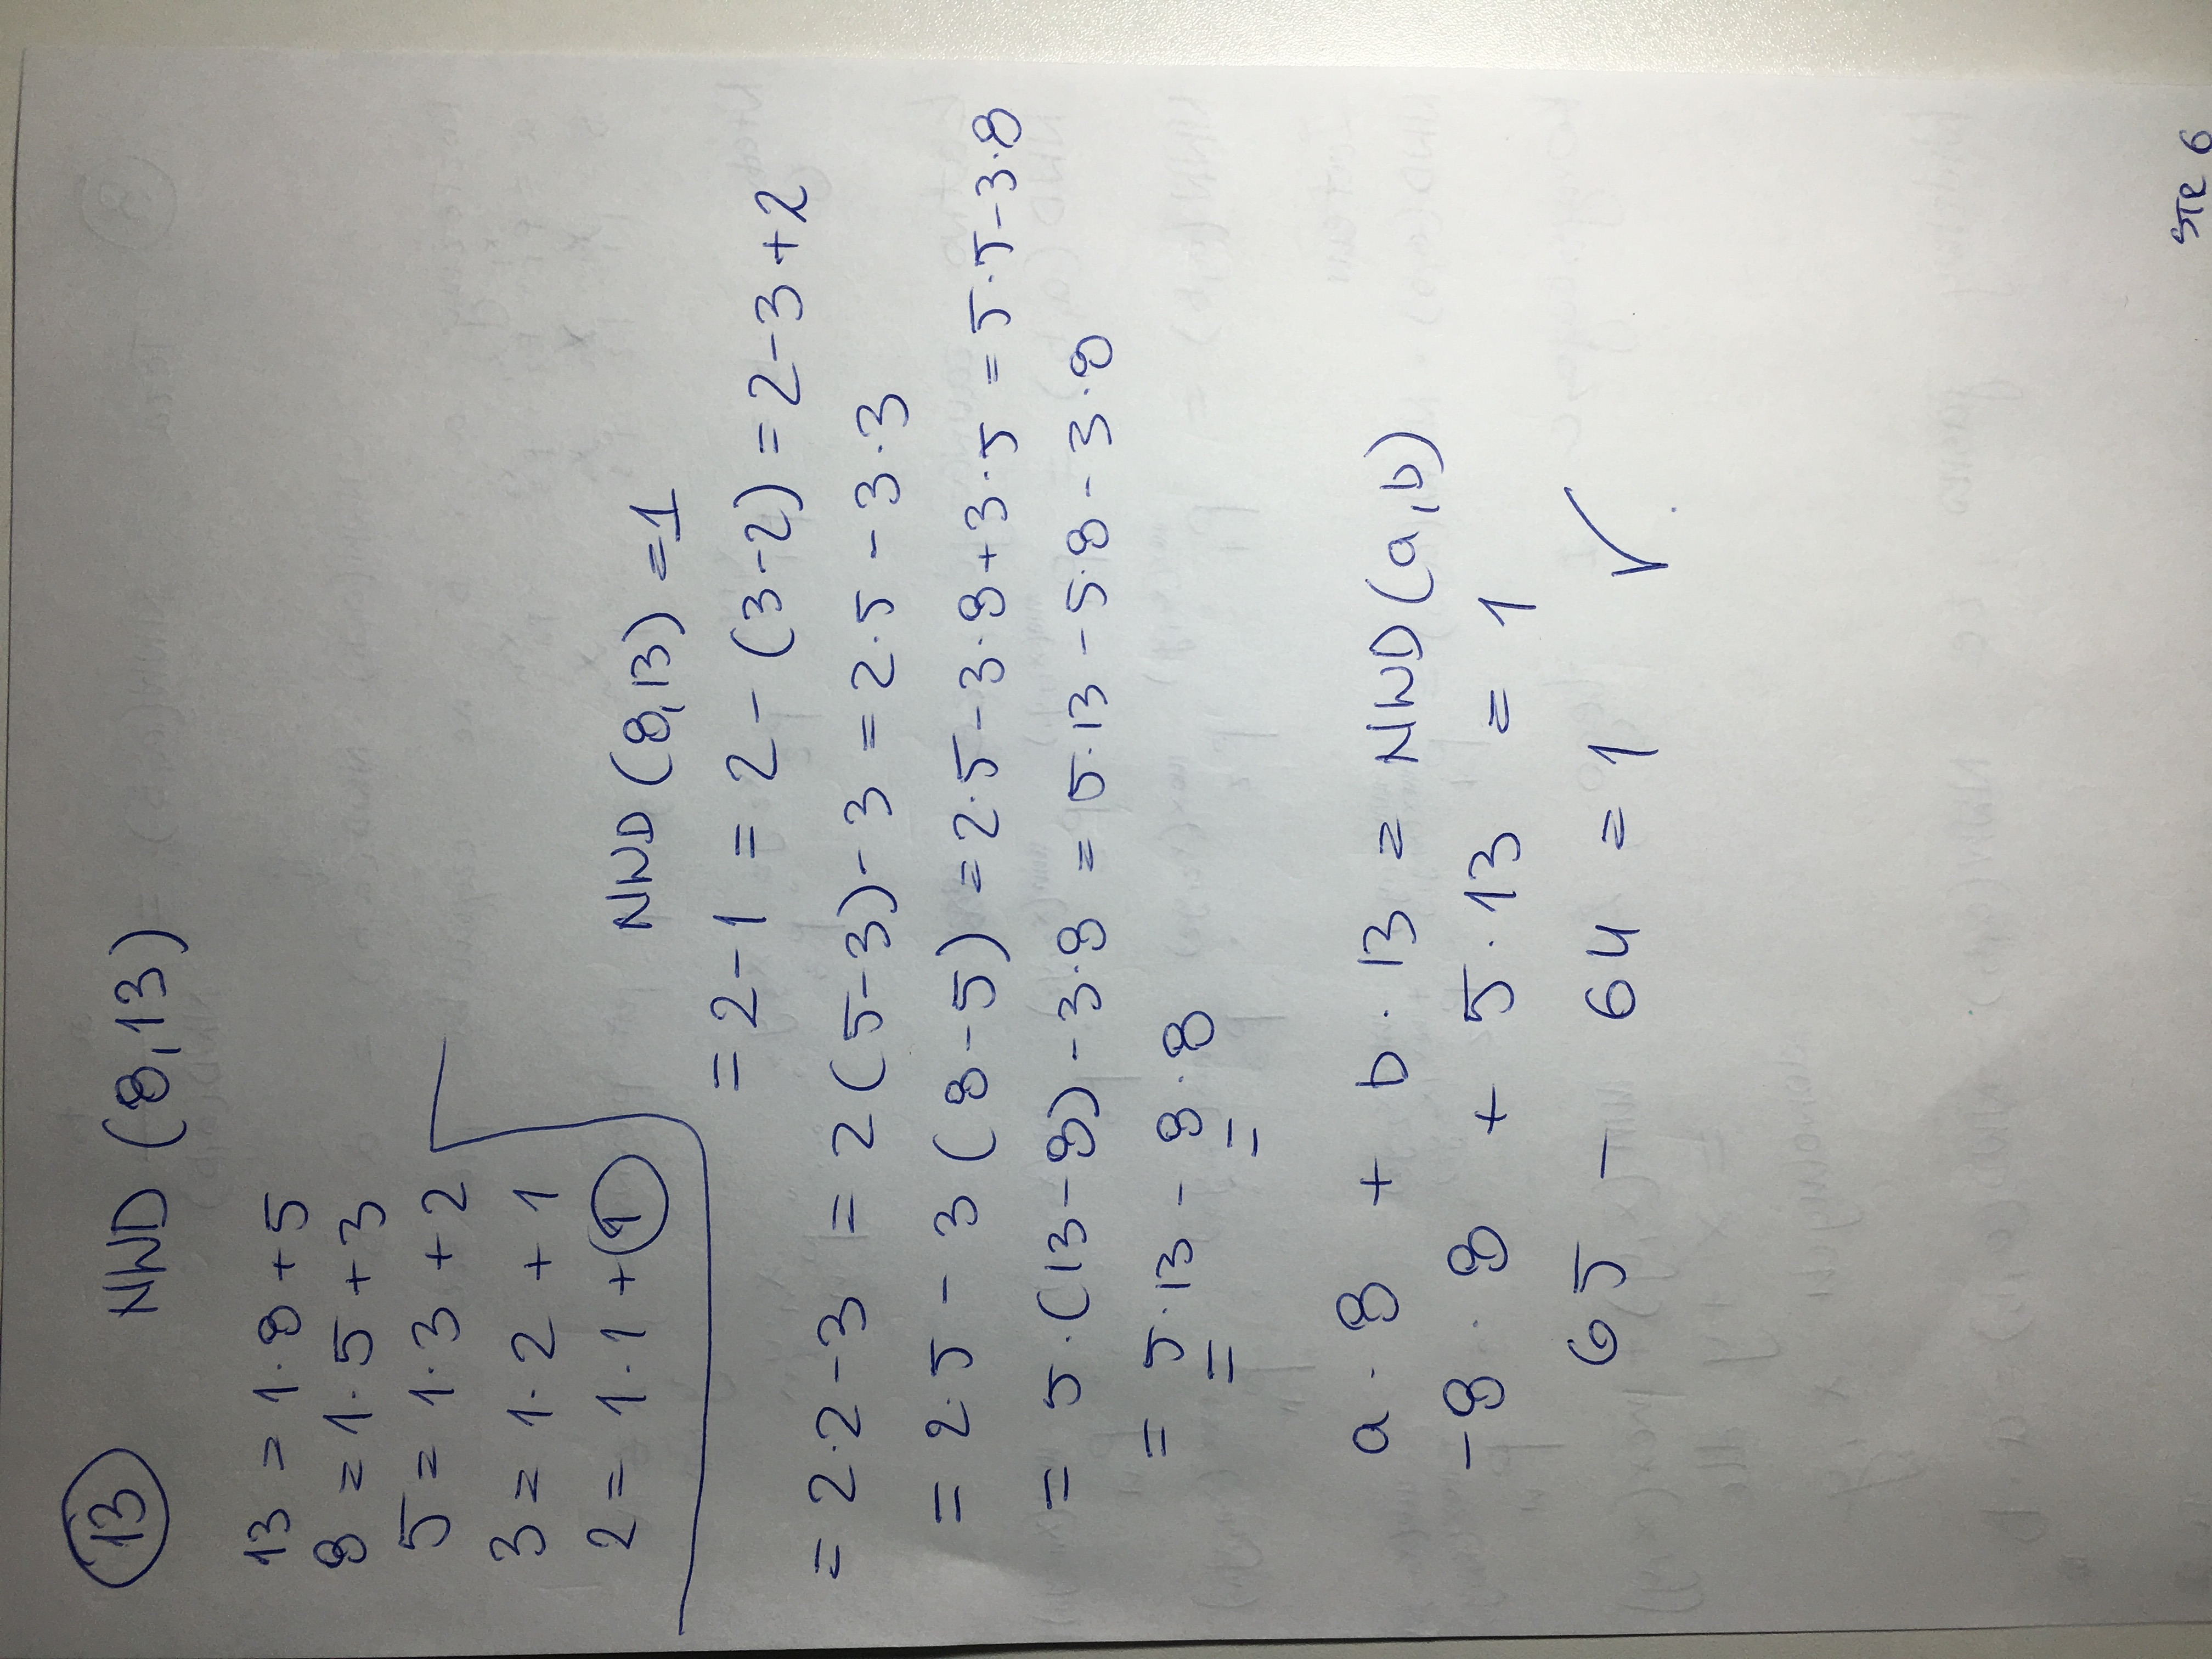 13 NWD (8,13)
13 = 1·8+5
8 = 1·5+3
5 = 1·3+2
3 = 1·2+1
2 = 1·1+1
NWD (8,13) = 1
= 2-1 = 2-(3-2) = 2-3+2
= 2·2-3 = 2(5-3)-3 = 2·5-3·3
= 2·5-3(8-5) = 2·5-3·8+3·5 = 5·5-3·8
= 5·(13-8)-3·8 = 5·13-5·8-3·8
= 5·13-8·8
a·8 + b·13 = NWD(a,b)
-8·8 + 5·13 = 1
65 - 64 = 1 ✓
STR 6